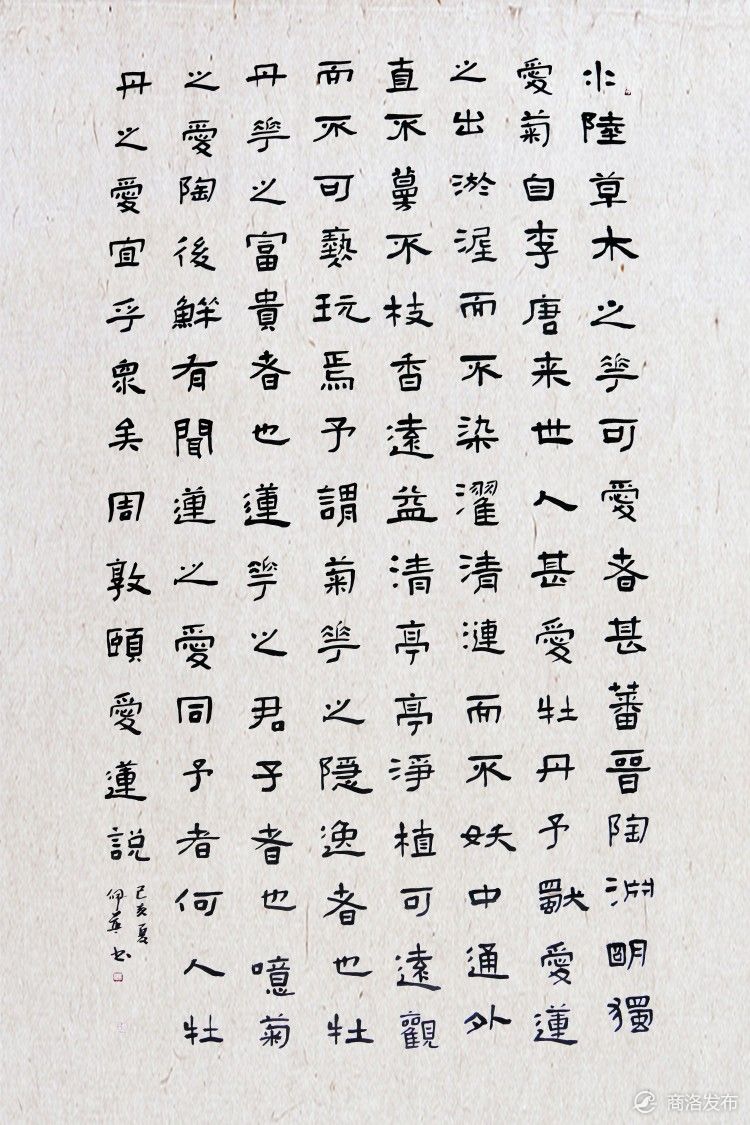 水陸草木之華可愛者甚蕃晉陶淵明獨
愛菊自李唐来世人甚愛牡丹予獨愛蓮
之出淤泥而不染濯清漣而不妖中通外
直不蔓不枝香遠益清亭亭淨植可遠觀
而不可褻玩焉予謂菊華之隐逸者也牡
丹華之富貴者也蓮華之君子者也噫菊
之愛陶後鮮有聞蓮之愛同予者何人牡
丹之愛宜乎眾矣周敦頤愛蓮說
己亥夏
书
商洛发布